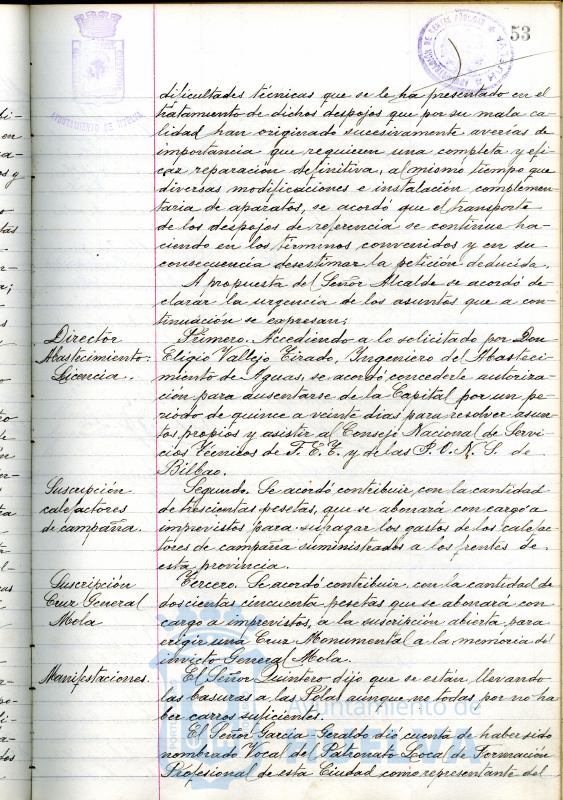 53
AYUNTAMIENTO DE HUELVA
dificultades técnicas que se le ha presentado en el
tratamiento de dichos despojos que por su mala ca-
lidad han originado sucesivamente averías de
importancia que requieren una completa y efi-
caz reparación definitiva, al mismo tiempo que
diversas modificaciones e instalación complemen-
taria de aparatos, se acordó que el transporte
de los despojos de referencia se continue ha-
ciendo en los términos convenidos y en su
consecuencia desestimar la petición deducida.
A propuesta del Señor Alcalde se acordó de-
clarar la urgencia de los asuntos que a con-
tinuación se expresan:
Director
Abastecimiento:
Licencia.
Primero. Accediendo a lo solicitado por Don
Eligio Vallejo Tirado, Ingeniero del Abasteci-
miento de Aguas, se acordó concederle autoriza-
ción para ausentarse de la Capital por un pe-
riodo de quince a veinte dias para resolver asun-
tos propios y asistir al Consejo Nacional de Servi-
cios Técnicos de F. E. T. y de las J. O. N. S. de
Bilbao.
Suscripción
calefactores
de campaña.
Segundo. Se acordó contribuir con la cantidad
de trescientas pesetas, que se abonará con cargo a
imprevistos para sufragar los gastos de los calefac-
tores de campaña suministrados a los frentes de
esta provincia.
Suscripción
Cruz General
Mola
Tercero. Se acordó contribuir con la cantidad de
doscienta cincuenta pesetas que se abonará con
cargo a imprevistos, a la suscripción abierta para
erigir una Cruz Monumental a la memoria del
invicto General Mola.
Manifestaciones.
El Señor Quintero dijo que se están llevando
las basuras a las Islas aunque no todas por no ha-
ber carros suficientes.
El Señor Garcia-Geraldo dió cuenta de haber sido
nombrado Vocal del Patronato Local de Formación
Profesional de esta Ciudad como representante del
Ayuntamiento de
HUELVA